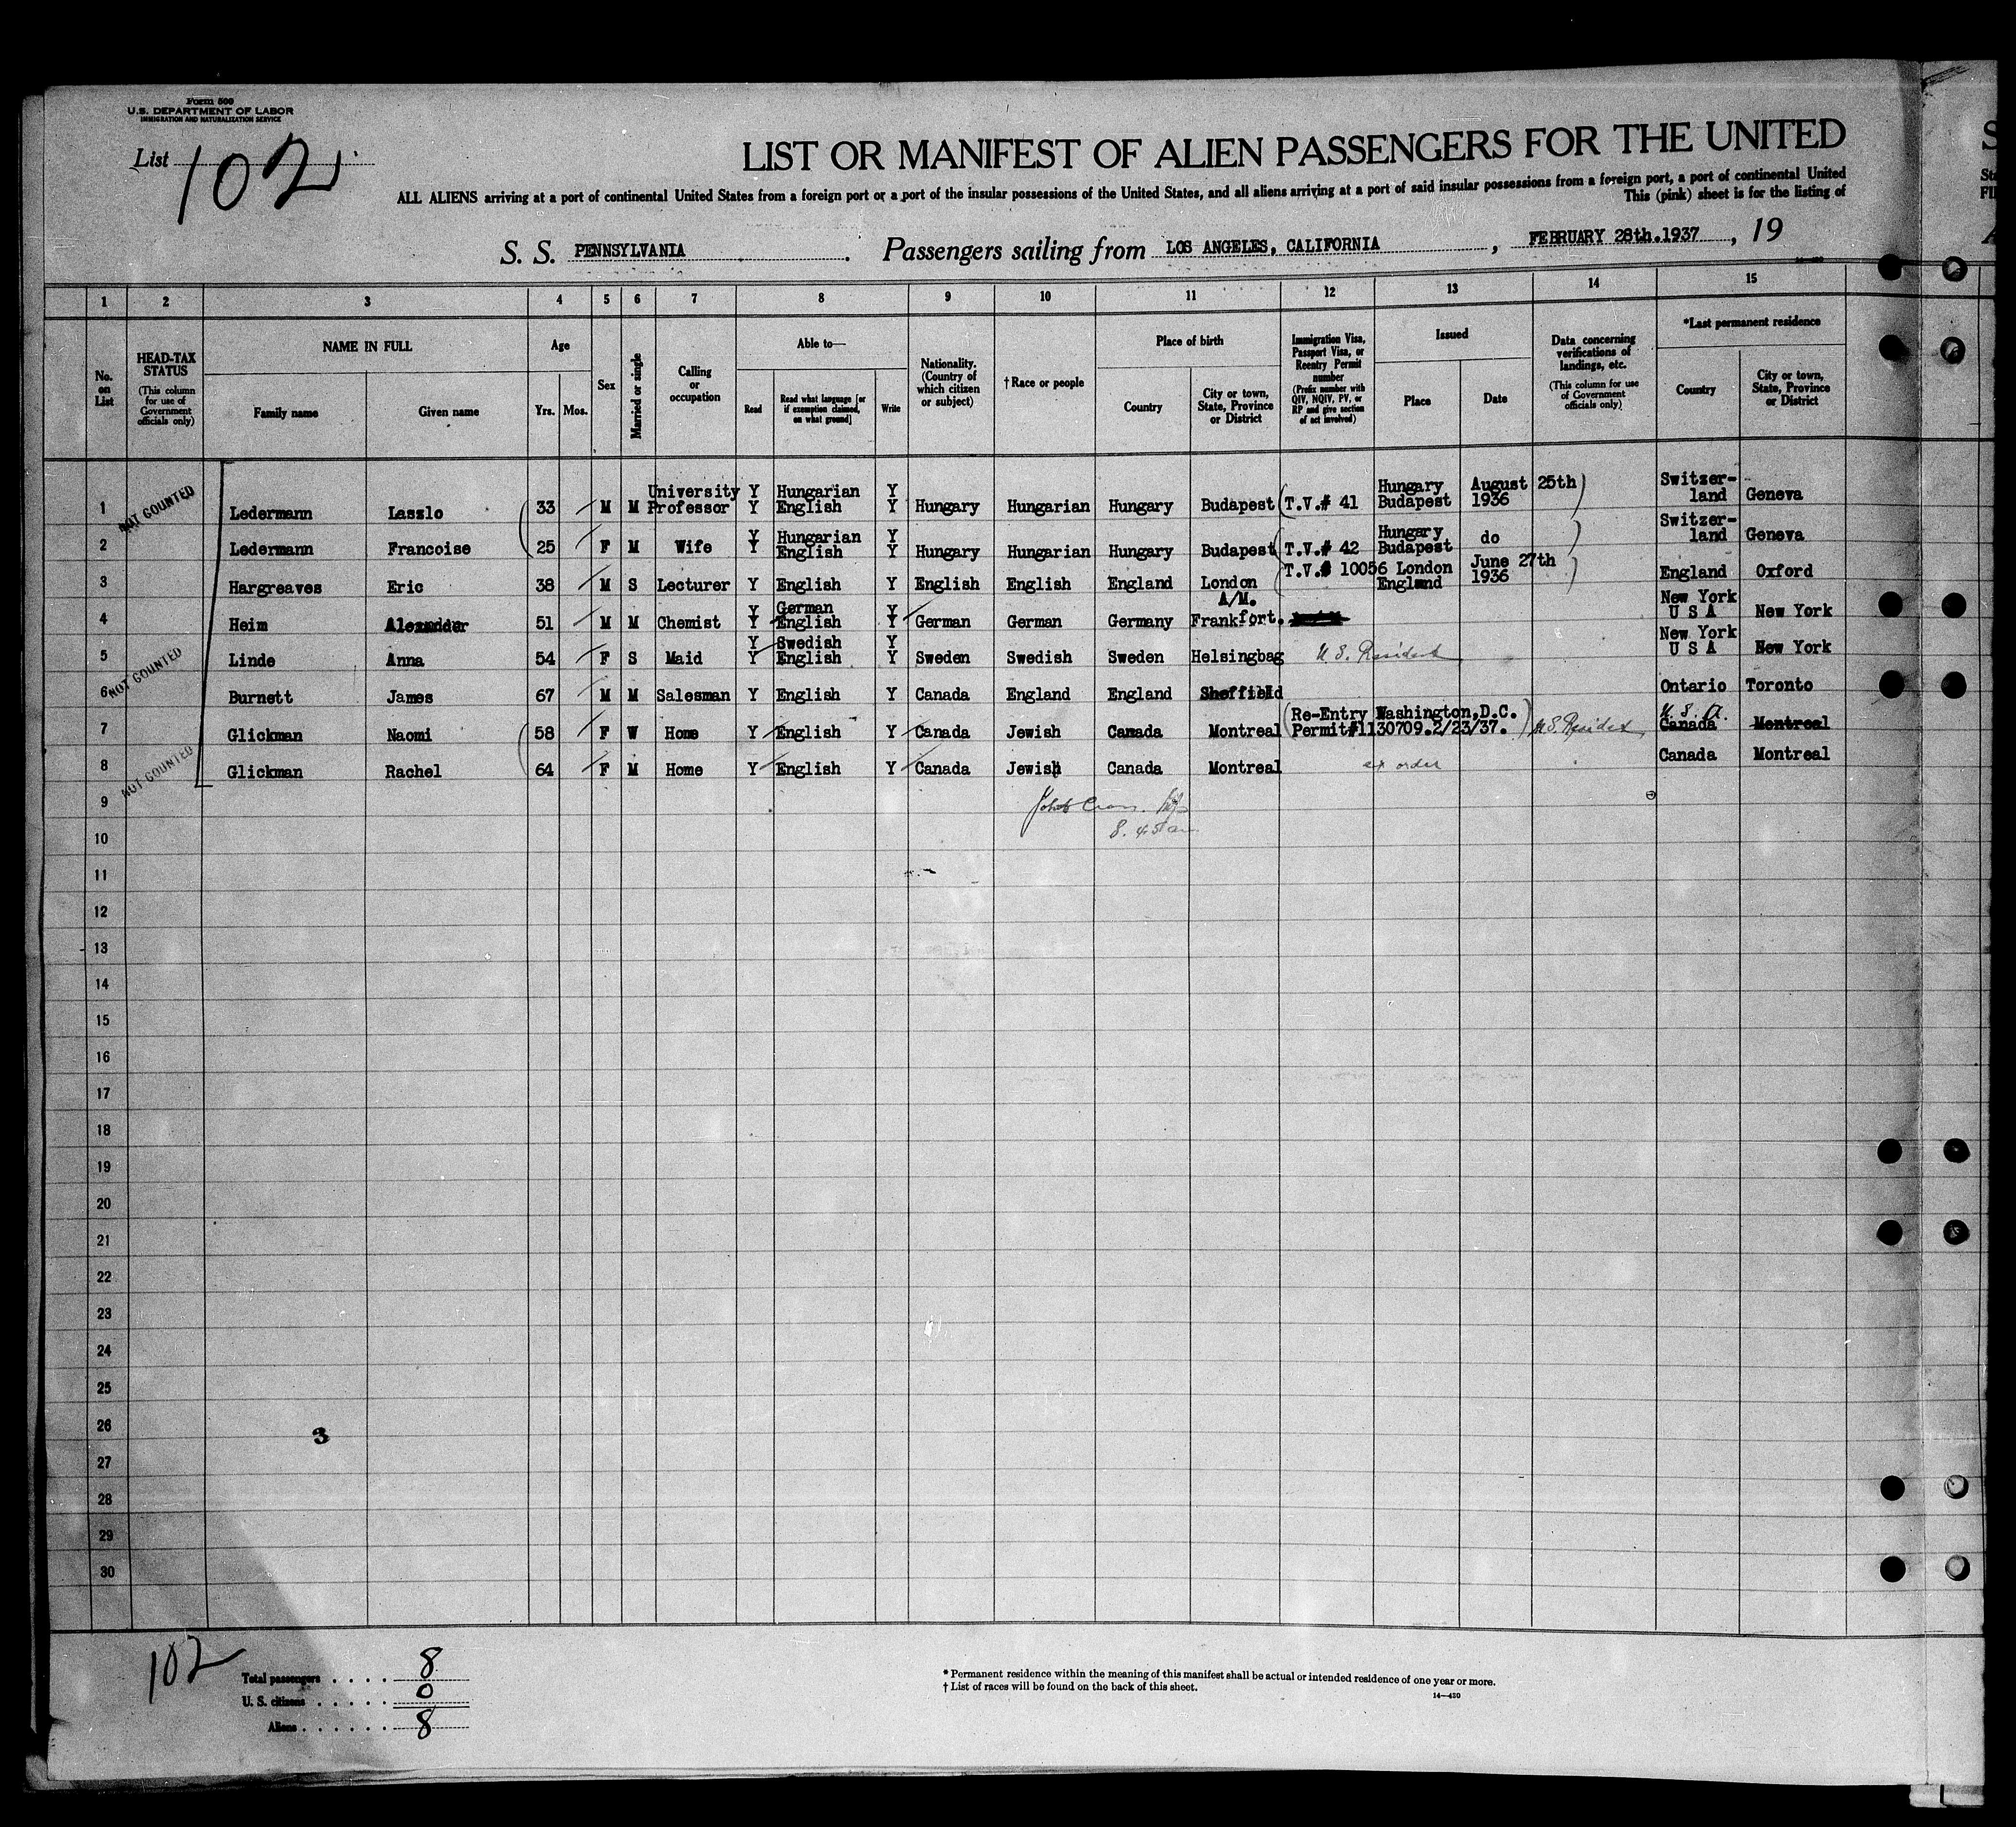 Form 500
U.S. DEPARTMENT OF LABOR
IMMIGRATION AND NATURALIZATION SERVICE
List 102
LIST OR MANIFEST OF ALIEN PASSENGERS FOR THE UNITED
ALL ALIENS arriving at a port of continental United States from a foreign port or a port of the insular possessions of the United States, and all aliens arriving at a port of said insular possessions from a foreign port, a port of continental United
This (pink) sheet is for the listing of
S. S. PENNSYLVANIA Passengers sailing from LOS ANGELES, CALIFORNIA , FEBRUARY 28th.1937 , 19
1 2 3 4 5 6 7 8 9 10 11 12 13 14 15
No. on List
HEAD-TAX STATUS (This column for use of Government officials only)
NAME IN FULL
Family name Given name
Age
Yrs. Mos.
Sex
Married or single
Calling or occupation
Able to—
Read Read what language [or if exemption claimed, on what ground] Write
Nationality. (Country of which citizen or subject)
† Race or people
Place of birth
Country City or town, State, Province or District
Immigration Visa, Passport Visa, or Reentry Permit number (Prefix number with QIV, NQIV, PV, or RP and give section of act involved)
Issued
Place Date
Data concerning verifications of landings, etc. (This column for use of Government officials only)
*Last permanent residence
Country City or town, State, Province or District
NOT COUNTED
1 Ledermann Laszlo 33 M M University Professor Y Y Hungarian English Y Y Hungary Hungarian Hungary Budapest T.V.# 41 Hungary Budapest August 25th 1936 Switzer-land Geneva
2 Ledermann Francoise 25 F M Wife Y Y Hungarian English Y Y Hungary Hungarian Hungary Budapest T.V.# 42 Hungary Budapest do Switzer-land Geneva
3 Hargreaves Eric 38 M S Lecturer Y English Y English English England London T.V.# 10056 London England June 27th 1936 England Oxford
4 Heim Alexander 51 M M Chemist Y Y German English Y Y German German Germany Frankfort. A/M. New York U S A New York
5 Linde Anna 54 F S Maid Y Y Swedish English Y Y Sweden Swedish Sweden Helsingbag U.S. Resident New York U S A New York
NOT COUNTED
6 Burnett James 67 M M Salesman Y English Y Canada England England Sheffield Ontario Toronto
7 Glickman Naomi 58 F W Home Y English Y Canada Jewish Canada Montreal Re-Entry Washington,D.C. Permit#1130709.2/23/37. U.S. Resident U.S.A. Canada Montreal
NOT COUNTED
8 Glickman Rachel 64 F M Home Y English Y Canada Jewish Canada Montreal ex order Canada Montreal
9
10
11
12
13
14
15
16
17
18
19
20
21
22
23
24
25
26
3
27
28
29
30
102
Total passengers . . . . . 8
U. S. citizens . . . . . 0
Aliens . . . . . . 8
* Permanent residence within the meaning of this manifest shall be actual or intended residence of one year or more.
† List of races will be found on the back of this sheet.
14—430